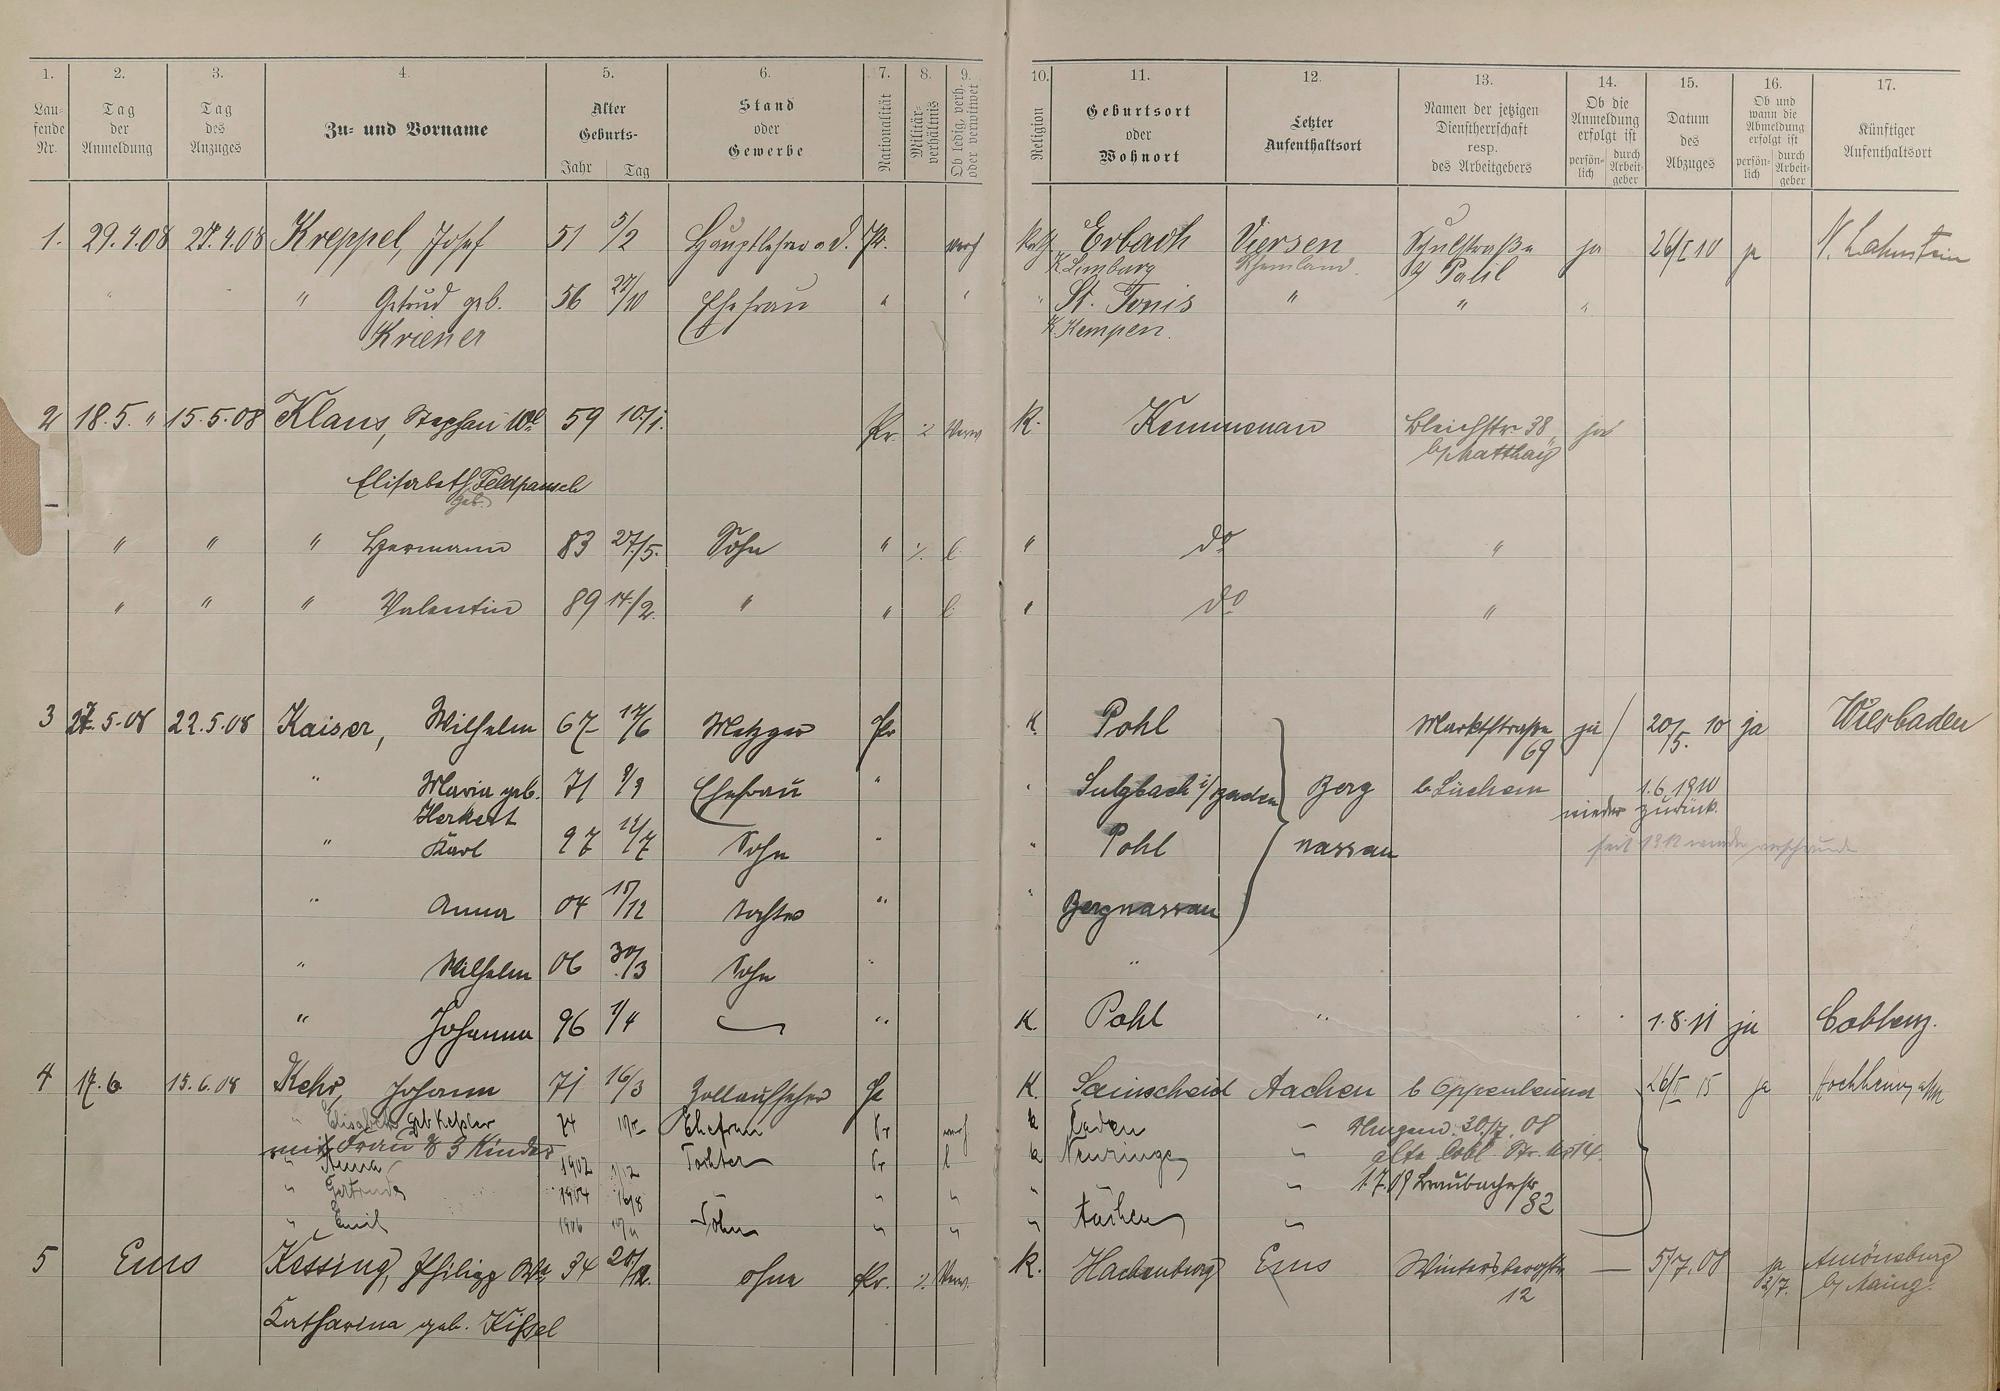 1. 2. 3. 4. 5. 6. 7. 8. 9. 10. 11. 12. 13. 14. 15. 16. 17.
Lau-
fende
Nr.
Tag
der
Anmeldung
Tag
des
Anzuges
Zu- und Vorname
Alter
Geburts-
Jahr Tag
Stand
oder
Gewerbe
Nationalität
Militär-
verhältnis
Ob ledig, verh.
oder verwitwet
Religion
Geburtsort
oder
Wohnort
Letzter
Aufenthaltsort
Namen der jetzigen
Dienstherrschaft
resp.
des Arbeitgebers
Ob die
Anmeldung
erfolgt ist
persön-
lich
durch
Arbeit-
geber
Datum
des
Abzuges
Ob und
wann die
Abmeldung
erfolgt ist
persön-
lich
durch
Arbeit-
geber
Künftiger
Aufenthaltsort
1. 29.4.08 27.4.08 Kreppel, Josef 51 5/2 Hauptlehrer a. d. Pr. verh kath Erbach Viersen Schulstraße ja 26/I 10 ja N. Lahnstein
K Limburg Rheinland
" Getrud geb. 56 27/10 Ehefrau " " " St. Tonis " " "
Kriener K Kempen.
2 18.5. " 15.5.08 Klaus, Stephan Ww 59 10/1. Pr ٪ Verw K. Kemmenau Bleichstr 38 ja
b/ Matthäy
Elisabeth Feldpausch
geb.
" " " Hermann 83 27/5. Sohn " ٪ l. " do "
" " " Valentin 89 14/2. " " l. " do "
3 27.5.08 22.5.08 Kaiser, Wilhelm 67 17/6 Metzger Pr K. Pohl Marktstraße ja 20/5. 10 ja Wiesbaden
69
" Maria geb. 71 9/9 Ehefrau " " Sulzbach i/Baden Berg 1.6.1910
Herkert wieder zurück.
" Karl 97 12/7 Sohn " " Pohl nassau
seit 1912 wieder
" Anna 04 15/12 Tochter " " Bergnassau
" Wilhelm 06 30/3 Sohn " "
" Johanna 96 1/4 " K. Pohl " 1.8.11 ja Coblenz.
4 17.6 15.6.08 Kehr, Johann 71 16/3 Zollaufseher Pr K. Sainscheid Aachen b Oppenheimer 26/I 15 ja Hochheim a/M
" Elisabeth geb Keßler 74 Ehefrau Pr verh k Caden " 20/7. 08
mit Frau & 3 Kinder alte Cobl. Str. No 14.
" Anna 1902 1/12 Tochter Pr l k "
" Gertrude 1904 16/8 " " " " 1.7.09 Braubacherstr
82
" Emil 1906 Sohn " " " Aachen "
5 Ems Kessing, Philipp Ww 34 20/12. ohne Pr. ٪ Verw. K. Hachenburg Ems Wintersbergstr — 5/7.08 ja Amöneburg
12 2/7. b/ Mainz.
Catharina geb. Kissel